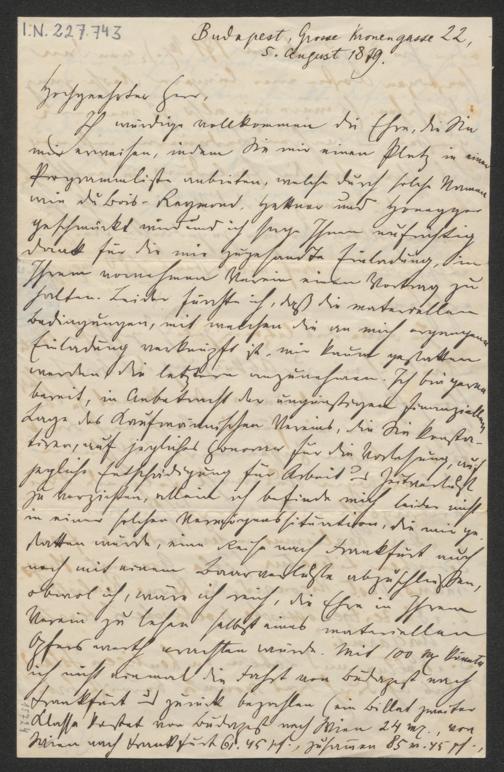 I.N. 227.743
Budapest, Grosse Kronengasse 22,
5. August 1879.
Hochgeehrter Herr,
Ich würdige vollkommen die Ehre, die Sie
mir erweisen, indem Sie mir einen Platz in einer
Programmliste anbieten, welche durch solche Namen
wie du Bois-Reymond, Hettner und Honegger
geschmückt wird und ich sage Ihnen aufrichtig
Dank für die mir zugesandte Einladung, in
Ihrem vornehmen Verein einen Vortrag zu
halten. Leider fürchte ich, daß die materiellen
Bedingungen, mit welchen die an mich ergangene
Einladung verknüpft ist, mir kaum gestatten
werden die letztere anzunehmen. Ich bin gerne
bereit, in Anbetracht der ungünstigen finanziellen
Lage des Kaufmännischen Vereins, die Sie konsta-
tiren, auf jegliches Honorar für die Vorlesung, auf
jegliche Entschädigung für Arbeit u Zeitverlust
zu verzichten, allein ich befinde mich leider nicht
in einer solchen Vermögenssituation, die mir ge-
statten würde, eine Reise nach Frankfurt auch
noch mit einem Baarverluste abzuschließen,
obwol ich, wäre ich reich, die Ehre in Ihrem
Verein zu lesen selbst eines materiellen
Opfers werth erachten würde. Mit 100 M. könnte
ich nicht einmal die Fahrt von Budapest nach
Frankfurt u zurück bezahlen (ein Billet zweiter
Classe kostet von Budapest nach Wien 24 M., von
Wien nach Frankfurt 61.45 Pf., zusamen 85 M. 45 Pf.,